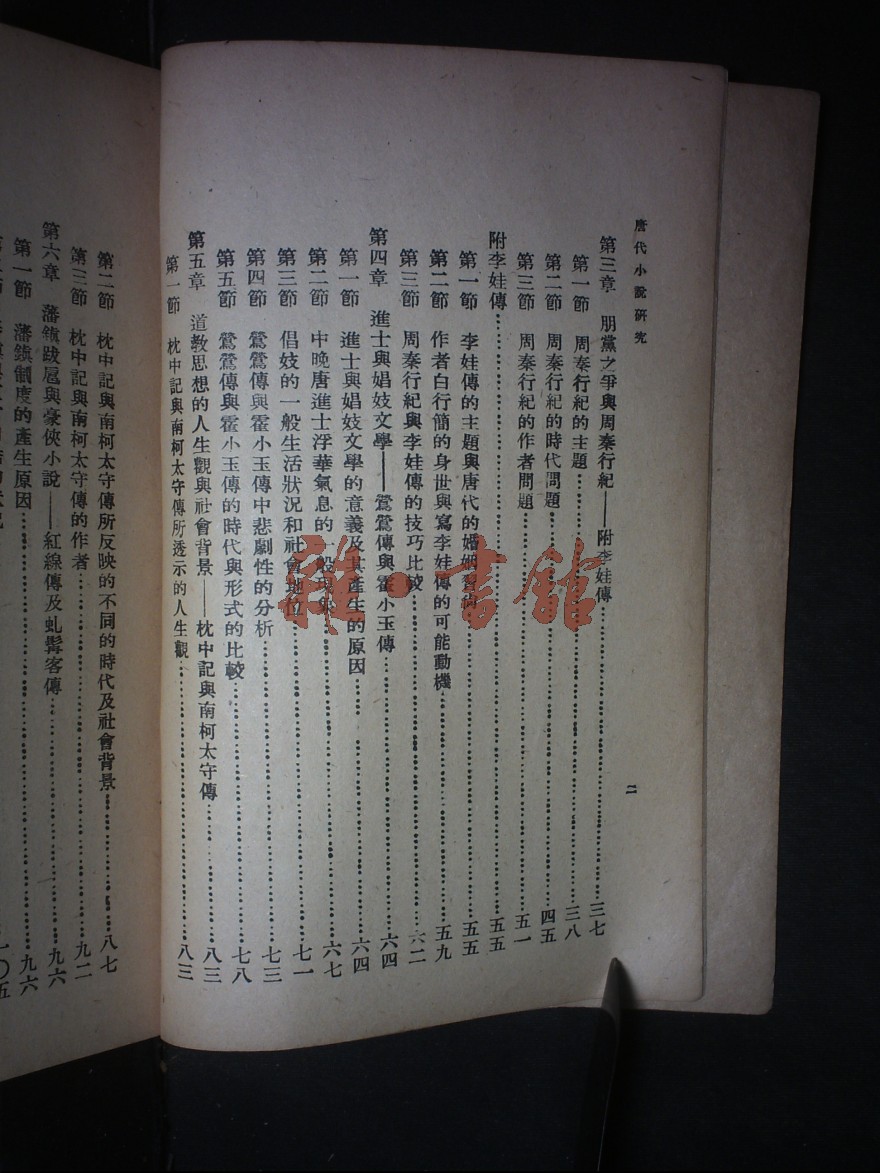 唐代小說研究
二
第三章 朋黨之爭與周秦行紀——附李娃傳…………三七
第一節 周秦行紀的主題…………三八
第二節 周秦行紀的時代問題…………四五
第三節 周秦行紀的作者問題…………五一
附李娃傳…………五五
第一節 李娃傳的主題與唐代的婚姻習尚…………五五
第二節 作者白行簡的身世與寫李娃傳的可能動機…………五九
第三節 周秦行紀與李娃傳的技巧比較…………六二
第四章 進士與娼妓文學——鶯鶯傳與霍小玉傳…………六四
第一節 進士與娼妓文學的意義及其產生的原因…………六四
第二節 中晚唐進士浮華氣息的一般現象…………六七
第三節 倡妓的一般生活狀況和社會地位…………七一
第四節 鶯鶯傳與霍小玉傳中悲劇性的分析…………七三
第五節 鶯鶯傳與霍小玉傳的時代與形式的比較…………七八
第五章 道教思想的人生觀與社會背景——枕中記與南柯太守傳…………八三
第一節 枕中記與南柯太守傳所透示的人生觀…………八三
第二節 枕中記與南柯太守傳所反映的不同的時代及社會背景…………八七
第三節 枕中記與南柯太守傳的作者…………九二
第六章 藩鎮跋扈與豪俠小說——紅線傳及虬髯客傳…………九六
第一節 藩鎮制度的產生原因…………九六
一〇五
雅·書館